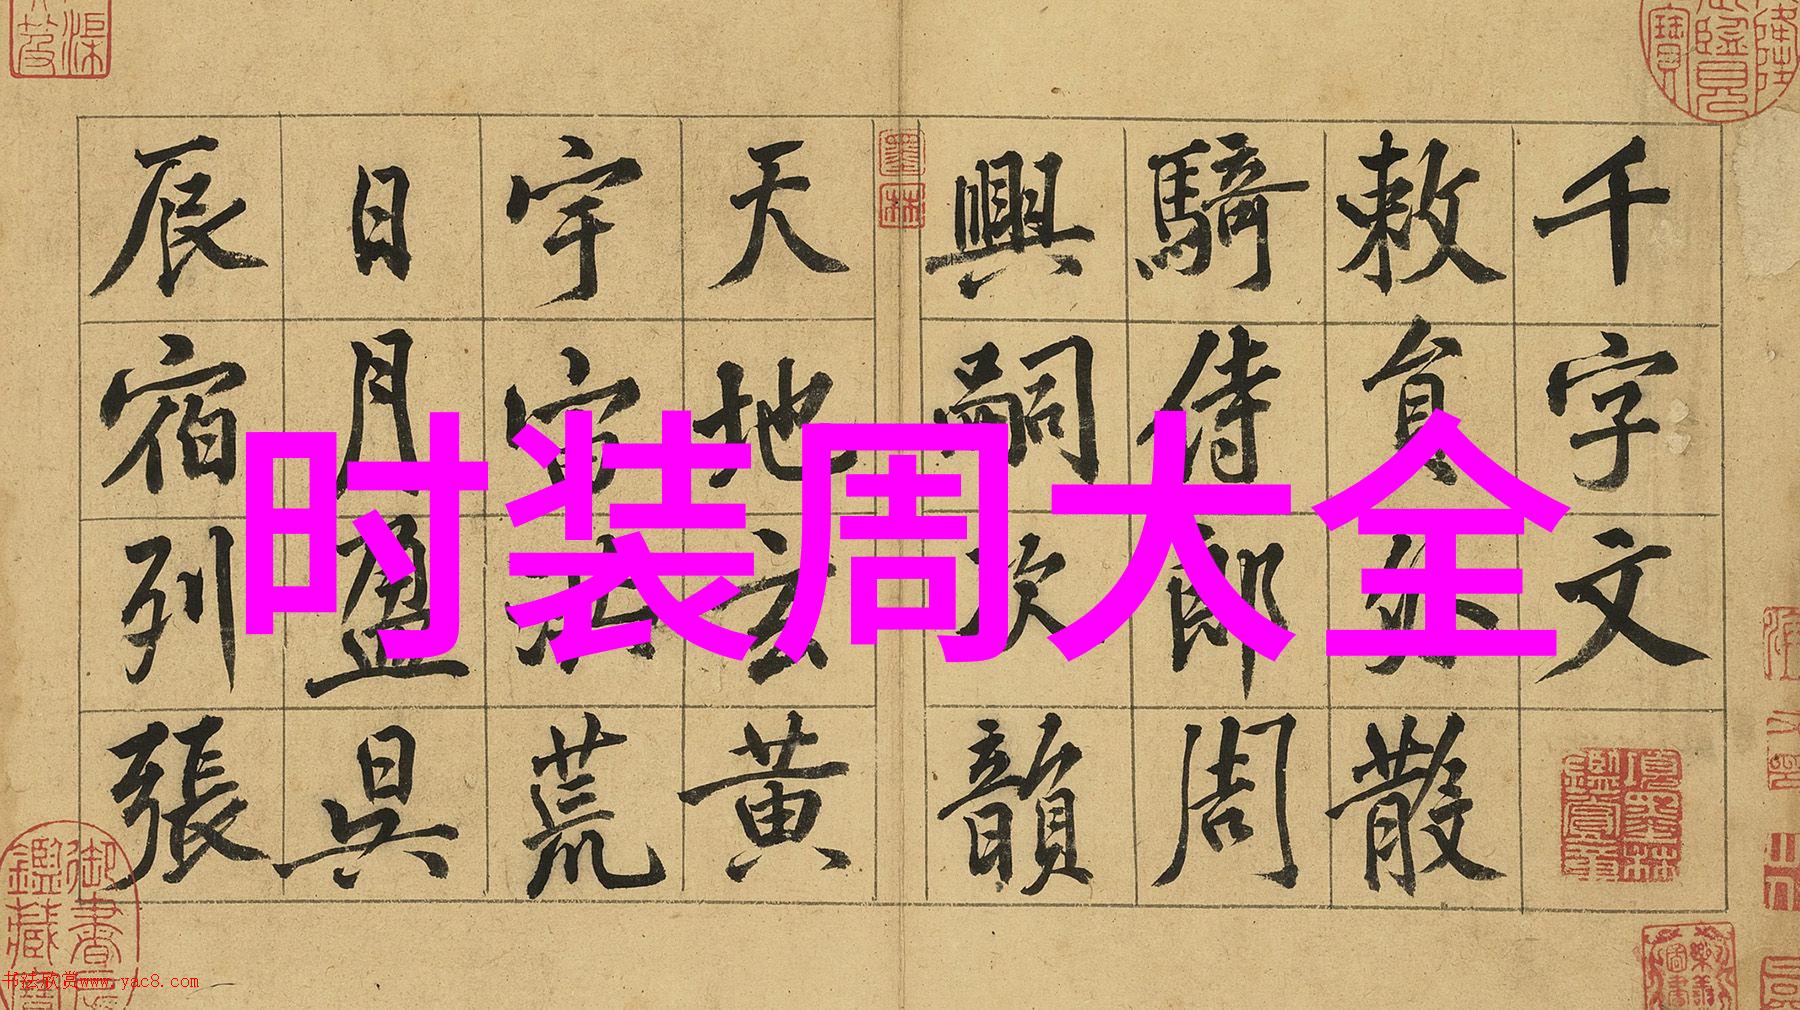 千字文
敕員外散
騎侍郎周
興嗣次韻
天地玄黄
宇宙洪荒
日月盈昃
辰宿列張
时装周大全
书法欣赏www.yac8.com